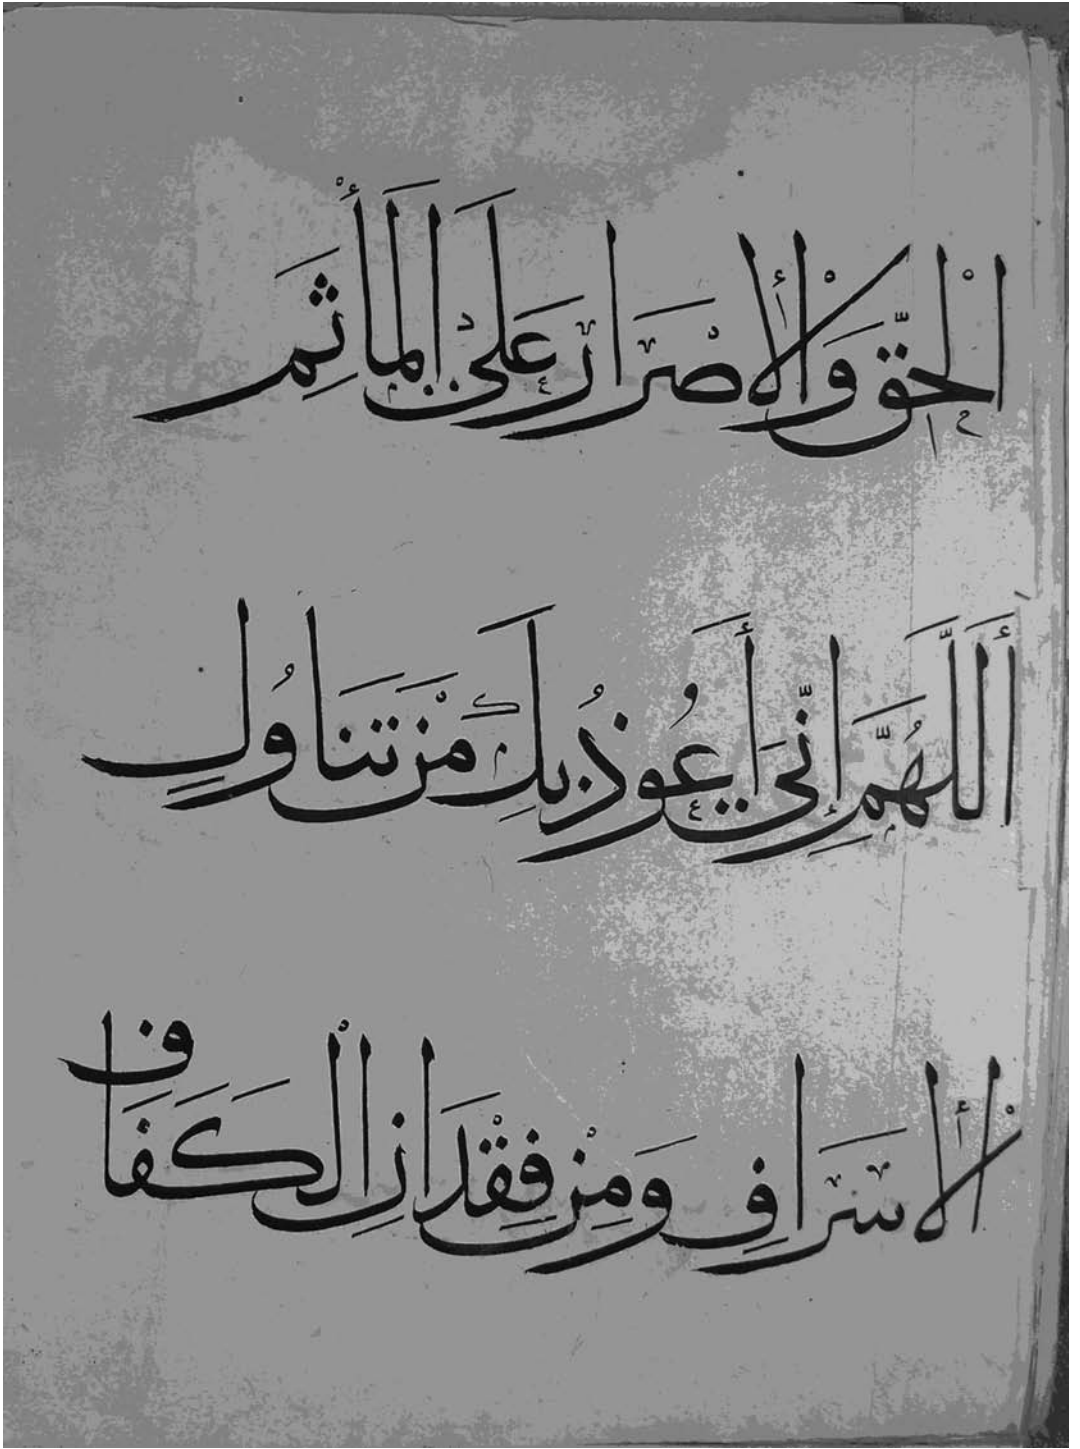 الْحَقِّ وَالْأِصْرَارِ عَلَى الْمَأْثَمِ
أَللَّهُمَّ إِنِّي أَعُوذُ بِكَ مِنْ تَنَاوُلِ
الْأِسْرَافِ وَمِنْ فِقْدَانِ الْكَفَافِ